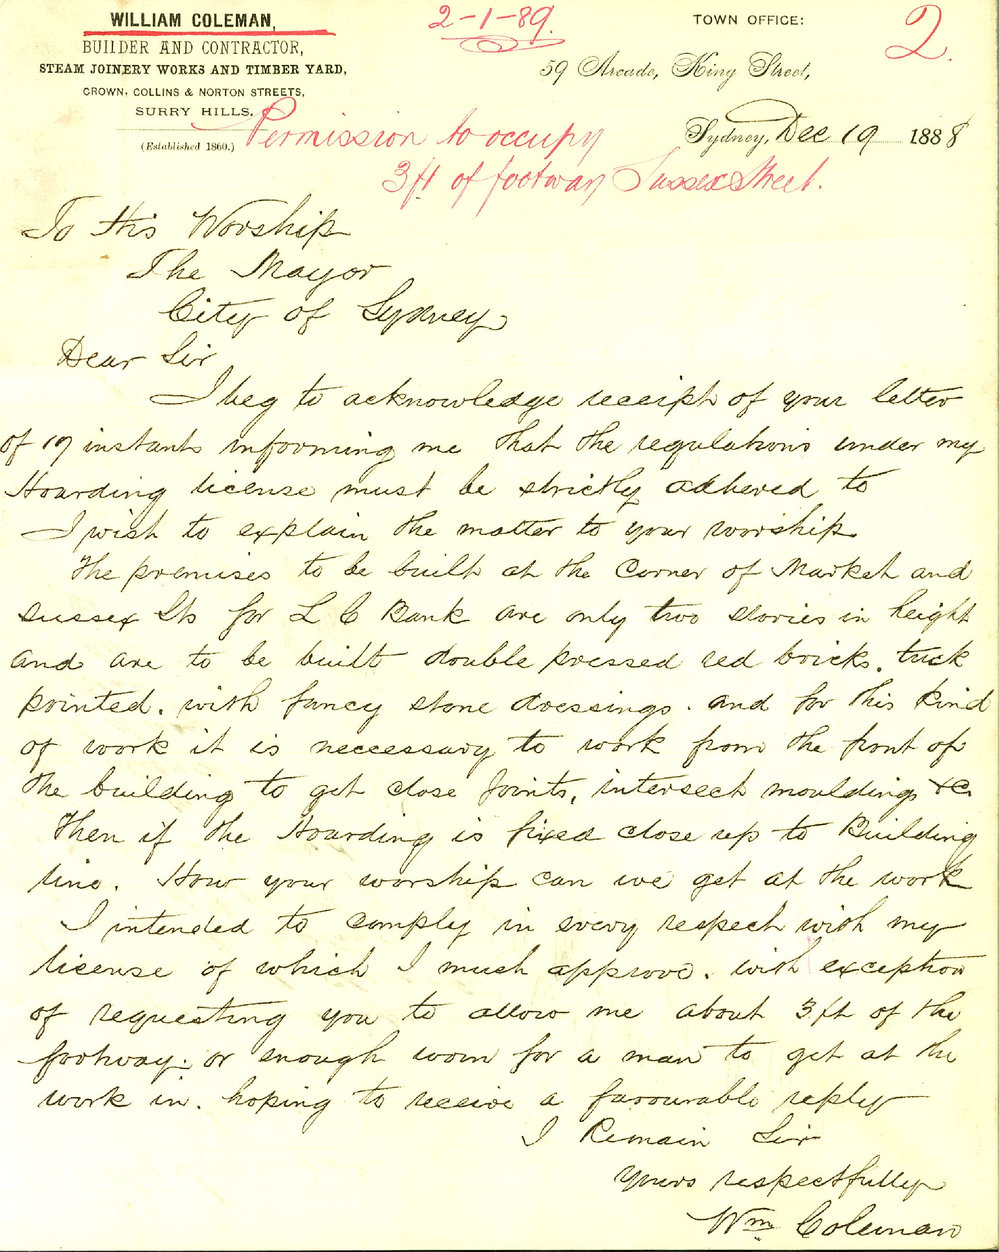 WILLIAM COLEMAN,
BUILDER AND CONTRACTOR,
STEAM JOINERY WORKS AND TIMBER YARD,
CROWN, COLLINS & NORTON STREETS,
SURRY HILLS.
(Established 1860.)
2-1-89.
TOWN OFFICE:
2.
59 Arcade, King Street,
Sydney, Dec 19 1888
Permission to occupy
3ft of footway Sussex Street.
To His Worship
The Mayor
City of Sydney
Dear Sir
I beg to acknowledge receipt of your letter
of 17 instant informing me that the regulations under my
Hoarding license must be strictly adhered to
I wish to explain the matter to your worship
The premises to be built at the corner of Market and
Sussex Sts for L C Bank are only two stories in height
and are to be built double pressed red bricks. tuck
pointed. with fancy stone dressings. and for this kind
of work it is neccessary to work from the front of
the building to get close joints, intersect mouldings &c.
Then if the Hoarding is fixed close up to Building
line. How your worship can we get at the work
I intended to comply in every respect with my
license of which I much approve. with exception
of requesting you to allow me about 3 ft of the
footway. or enough room for a man to get at the
work in. hoping to receive a favourable reply
I Remain Sir
yours respectfully
Wm Coleman